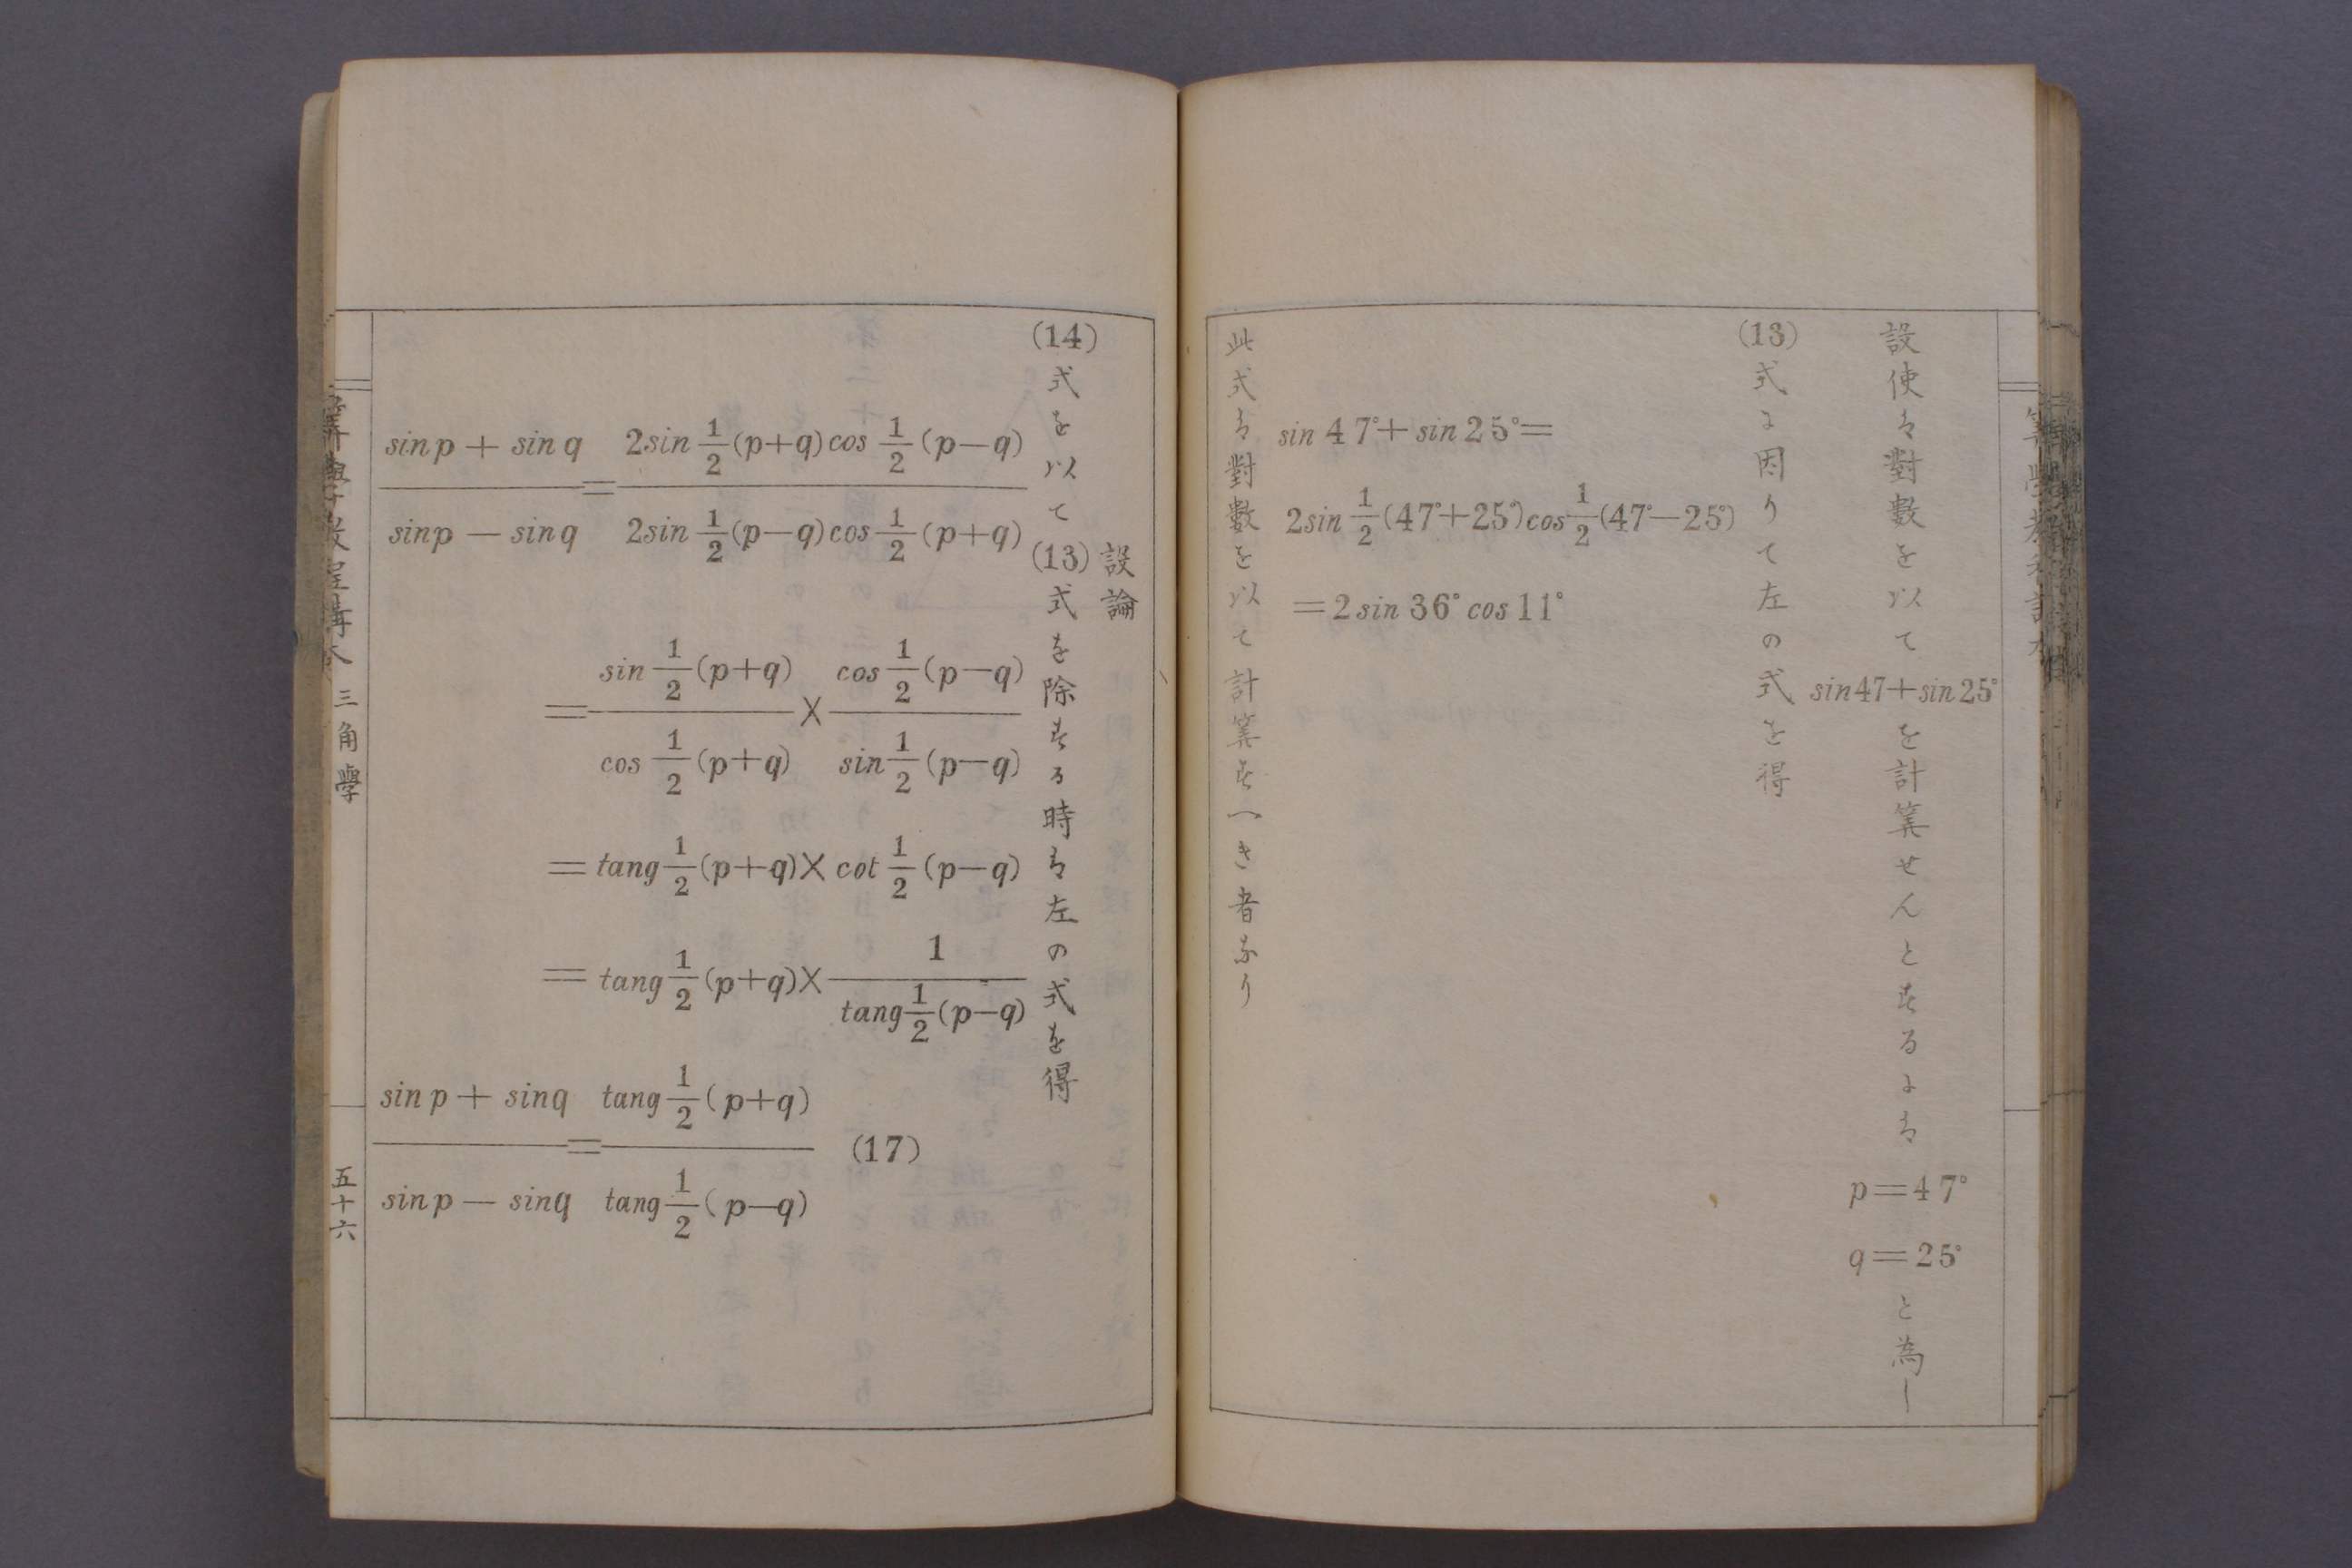 設使は對數を以て sin47+sin25° を計筭せんとするには p=47° q=25° と為し
(13)式に因りて左の式を得
sin47°+sin25°=
2sin 1/2 (47°+25°)cos 1/2 (47°−25°)
=2sin36°cos11°
此式は對數を以て計筭すへき者なり
設論
(14)式を以て(13)式を除する時は左の式を得
(sin p + sin q)/(sin p − sin q) = (2sin 1/2 (p+q) cos 1/2 (p−q))/(2sin 1/2 (p−q) cos 1/2 (p+q))
= (sin 1/2 (p+q))/(cos 1/2 (p+q)) × (cos 1/2 (p−q))/(sin 1/2 (p−q))
= tang 1/2 (p+q) × cot 1/2 (p−q)
= tang 1/2 (p+q) × 1/(tang 1/2 (p−q))
(sin p + sin q)/(sin p − sin q) = (tang 1/2 (p+q))/(tang 1/2 (p−q)) (17)
三角學
五十六